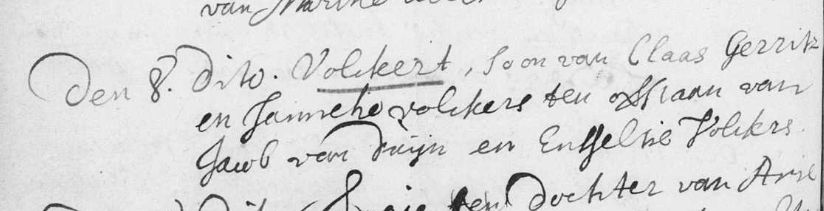 van
Den 8. Dito. Volckert, soon van Claas Gerritz
en Janneke volckers ten overstaan van
Jacob van Duijn en Engeltie Volckers.
Dochter van Arie